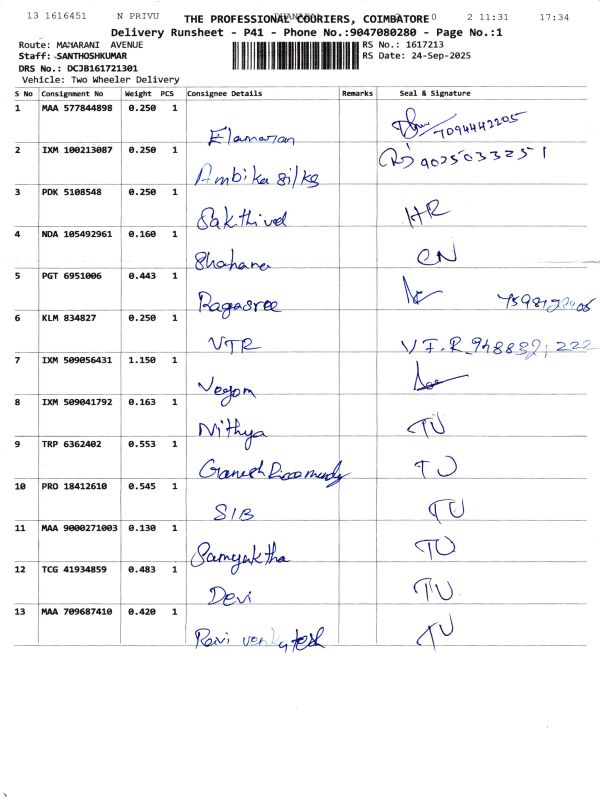 13 1616451 N PRIVU 2 11:31 17:34
THE PROFESSIONAL COURIERS, COIMBATORE
Delivery Runsheet - P41 - Phone No.:9047080280 - Page No.:1
Route: MAHARANI AVENUE RS No.: 1617213
Staff: SANTHOSHKUMAR RS Date: 24-Sep-2025
DRS No.: DCJB161721301
Vehicle: Two Wheeler Delivery
S No Consignment No Weight PCS Consignee Details Remarks Seal & Signature
1 MAA 577844898 0.250 1
Elamaran 7094442205
2 IXM 100213087 0.250 1
Ambika silks 9025033251
3 PDK 5108548 0.250 1
Sakthivel HR
4 NDA 105492961 0.160 1
Shahana CN
5 PGT 6951006 0.443 1
Ragasree
6 KLM 834827 0.250 1
VTR
7 IXM 509056431 1.150 1
8 IXM 509041792 0.163 1
Nithya TU
9 TRP 6362402 0.553 1
Ganesh TU
10 PRO 18412610 0.545 1
SIB TU
11 MAA 9000271003 0.130 1
Samyaktha TU
12 TCG 41934859 0.483 1
Devi TU
13 MAA 709687410 0.420 1
Ravi venkatesh TU